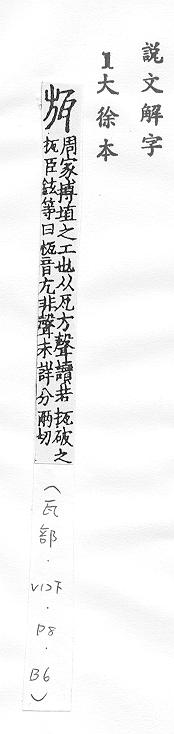 說文解字
1大徐本
瓬
周家摶埴之工也从瓦方聲讀若抵破之
抵臣鉉等曰抵音甫非聲未詳分兩切
(瓦部.V12下.P8.B6)